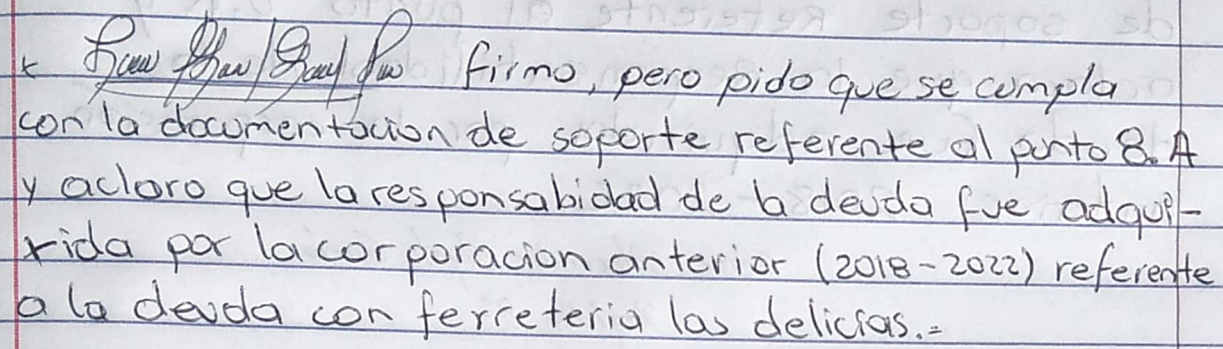 firmo, pero pido que se cumpla
con la documentacion de soporte referente al punto 8.A
y aclaro que la responsabidad de la deuda fue adqui-
rida por la corporacion anterior (2018-2022) referente
a la deuda con ferreteria las delicias.=